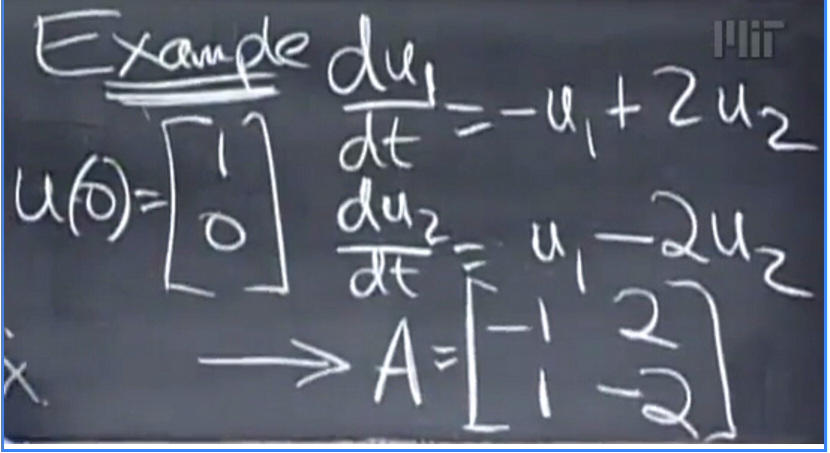 Example du₁/dt = -u₁ + 2u₂
u(0) = [1 0]
du₂/dt = u₁ - 2u₂
→ A = [-1 2
1 -2]
x.
MIT